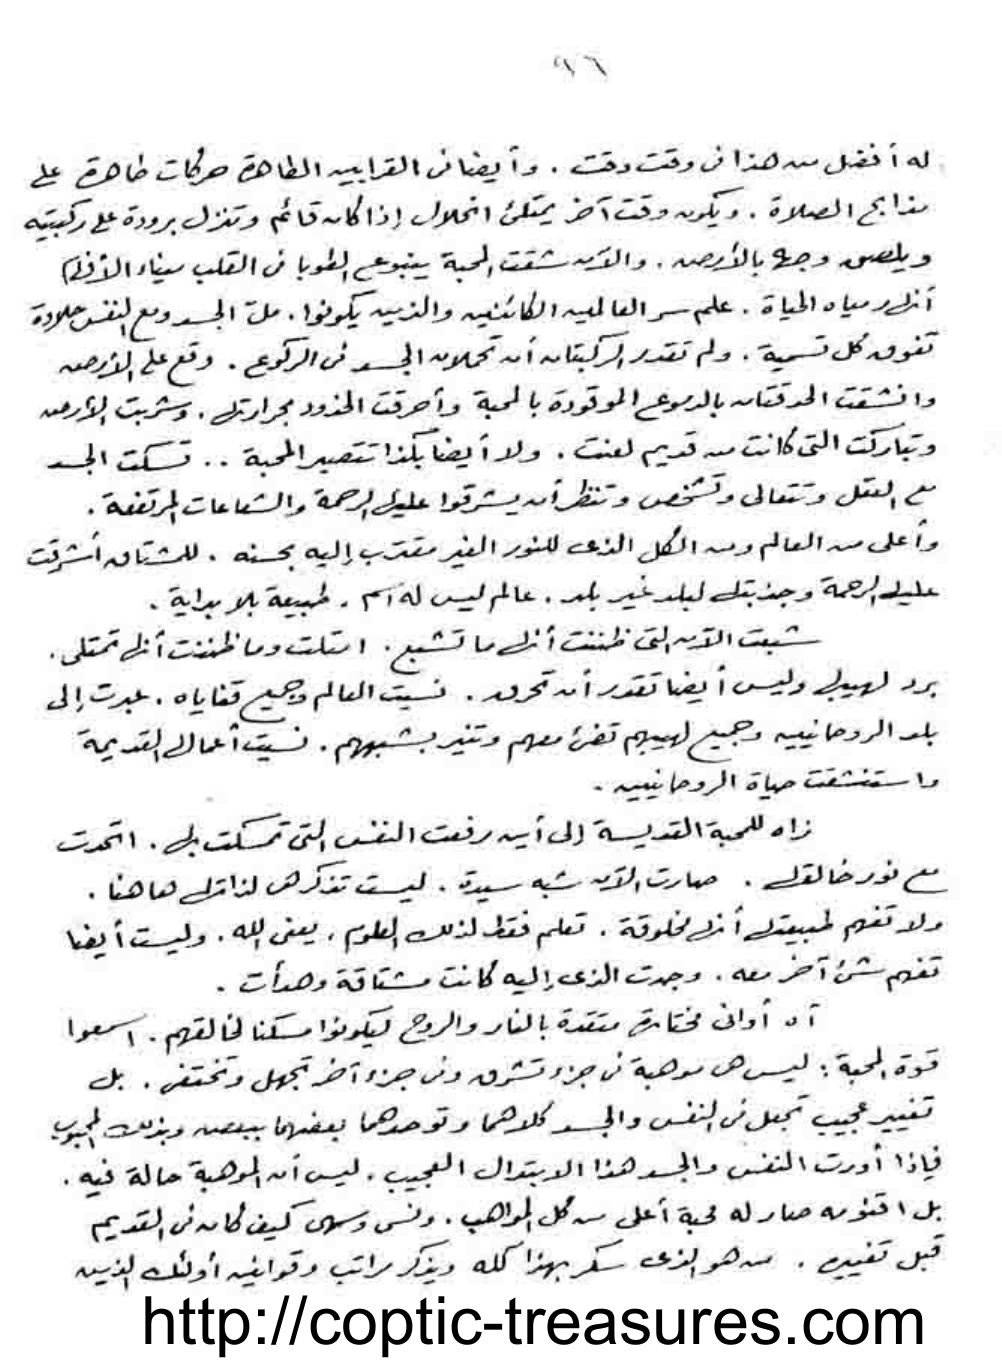 ٩٦
له أفضل من هذا فى وقت وقت . وأيضا فى القرابين الطاهرة حركات طاهرة على
مذابح الصلاة . ويكون وقت آخر يمتلئ انحلال إذا كان قائم وتنزل برودة على ركبتيه
ويلصق وجهه بالأرض . والآن شقت المحبة ينبوع الطوبا فى القلب
أنهار مياه الحياة . علم سر العالمين الكائنين والذين يكونوا . ملك الجسد ومع النفس حلاوة
تفوق كل تسمية . ولم تقدر الركبتان أن تحملان الجسد فى الركوع . وقع على الأرض
وانشقت الحدقتان بالدموع الموقودة بالمحبة وأحرقت الخدود بحرارتها . وشربت الأرض
وتباركت التى كانت من قديم لعنت . ولا أيضا هكذا تنتصر المحبة .. تسكت الجسد
مع العقل وتتعالى وتشخص وتنظر أن يشرقوا عليها الرحمة والشعاعات المرتفعة .
وأعلى من العالم ومن الكل الذى للنور الغير مقترب إليه بحسنه . للمشتاق أشرقت
عليها الرحمة وجذبتها لبلد غير بلد . عالم ليس له اسم . طبيعة بلا بداية .
شبعت الآن التى ظننت أنها ما تشبع . امتلت وما ظننت أنها تمتلى .
برد لهيبها وليس أيضا تقدر أن تحرق . نسيت العالم وجميع قناياه . عبرت إلى
بلد الروحانيين وجميع لهيبهم تضئ معهم وتنير بشبههم . نسيت أعمالها القديمة
واستنشقت حياة الروحانيين .
زاه للمحبة القديسة إلى أين رفعت النفس التى تمسكت بها . اتحدت
مع نور خالقها . صارت الآن شبه سيدة . ليست تذكر هى لذاتها هاهنا .
ولا تفهم طبيعتها أنها مخلوقة . تعلم فقط لذلك العلوم ، يعنى الله . وليست أيضا
تفهم شئ آخر معه . وجدت الذى إليه كانت مشتاقة وهدأت .
آه أوانى مختارة متقدة بالنار والروح ليكونوا مسكنا لخالقهم . اسمعوا
قوة المحبة : ليس هى موهبة فى جزء تشرق وفى جزء آخر تجهل وتختفى . بل
تغيير عجيب تجعل فى النفس والجسد كلاهما وتوحدهما بعضهما ببعض وبذلك المحبوب
فإذا أورت النفس والجسد هذا الابتدال العجيب . ليس أن الموهبة حالة فيه .
بل اقنومه صار له محبة أعلى من كل المواهب . ونسى وسهى كيف كان فى القديم
قبل تغييره . من هو الذى سكر بهذا كله ويذكر مراتب وقوانين أولئك الذين
http://coptic-treasures.com